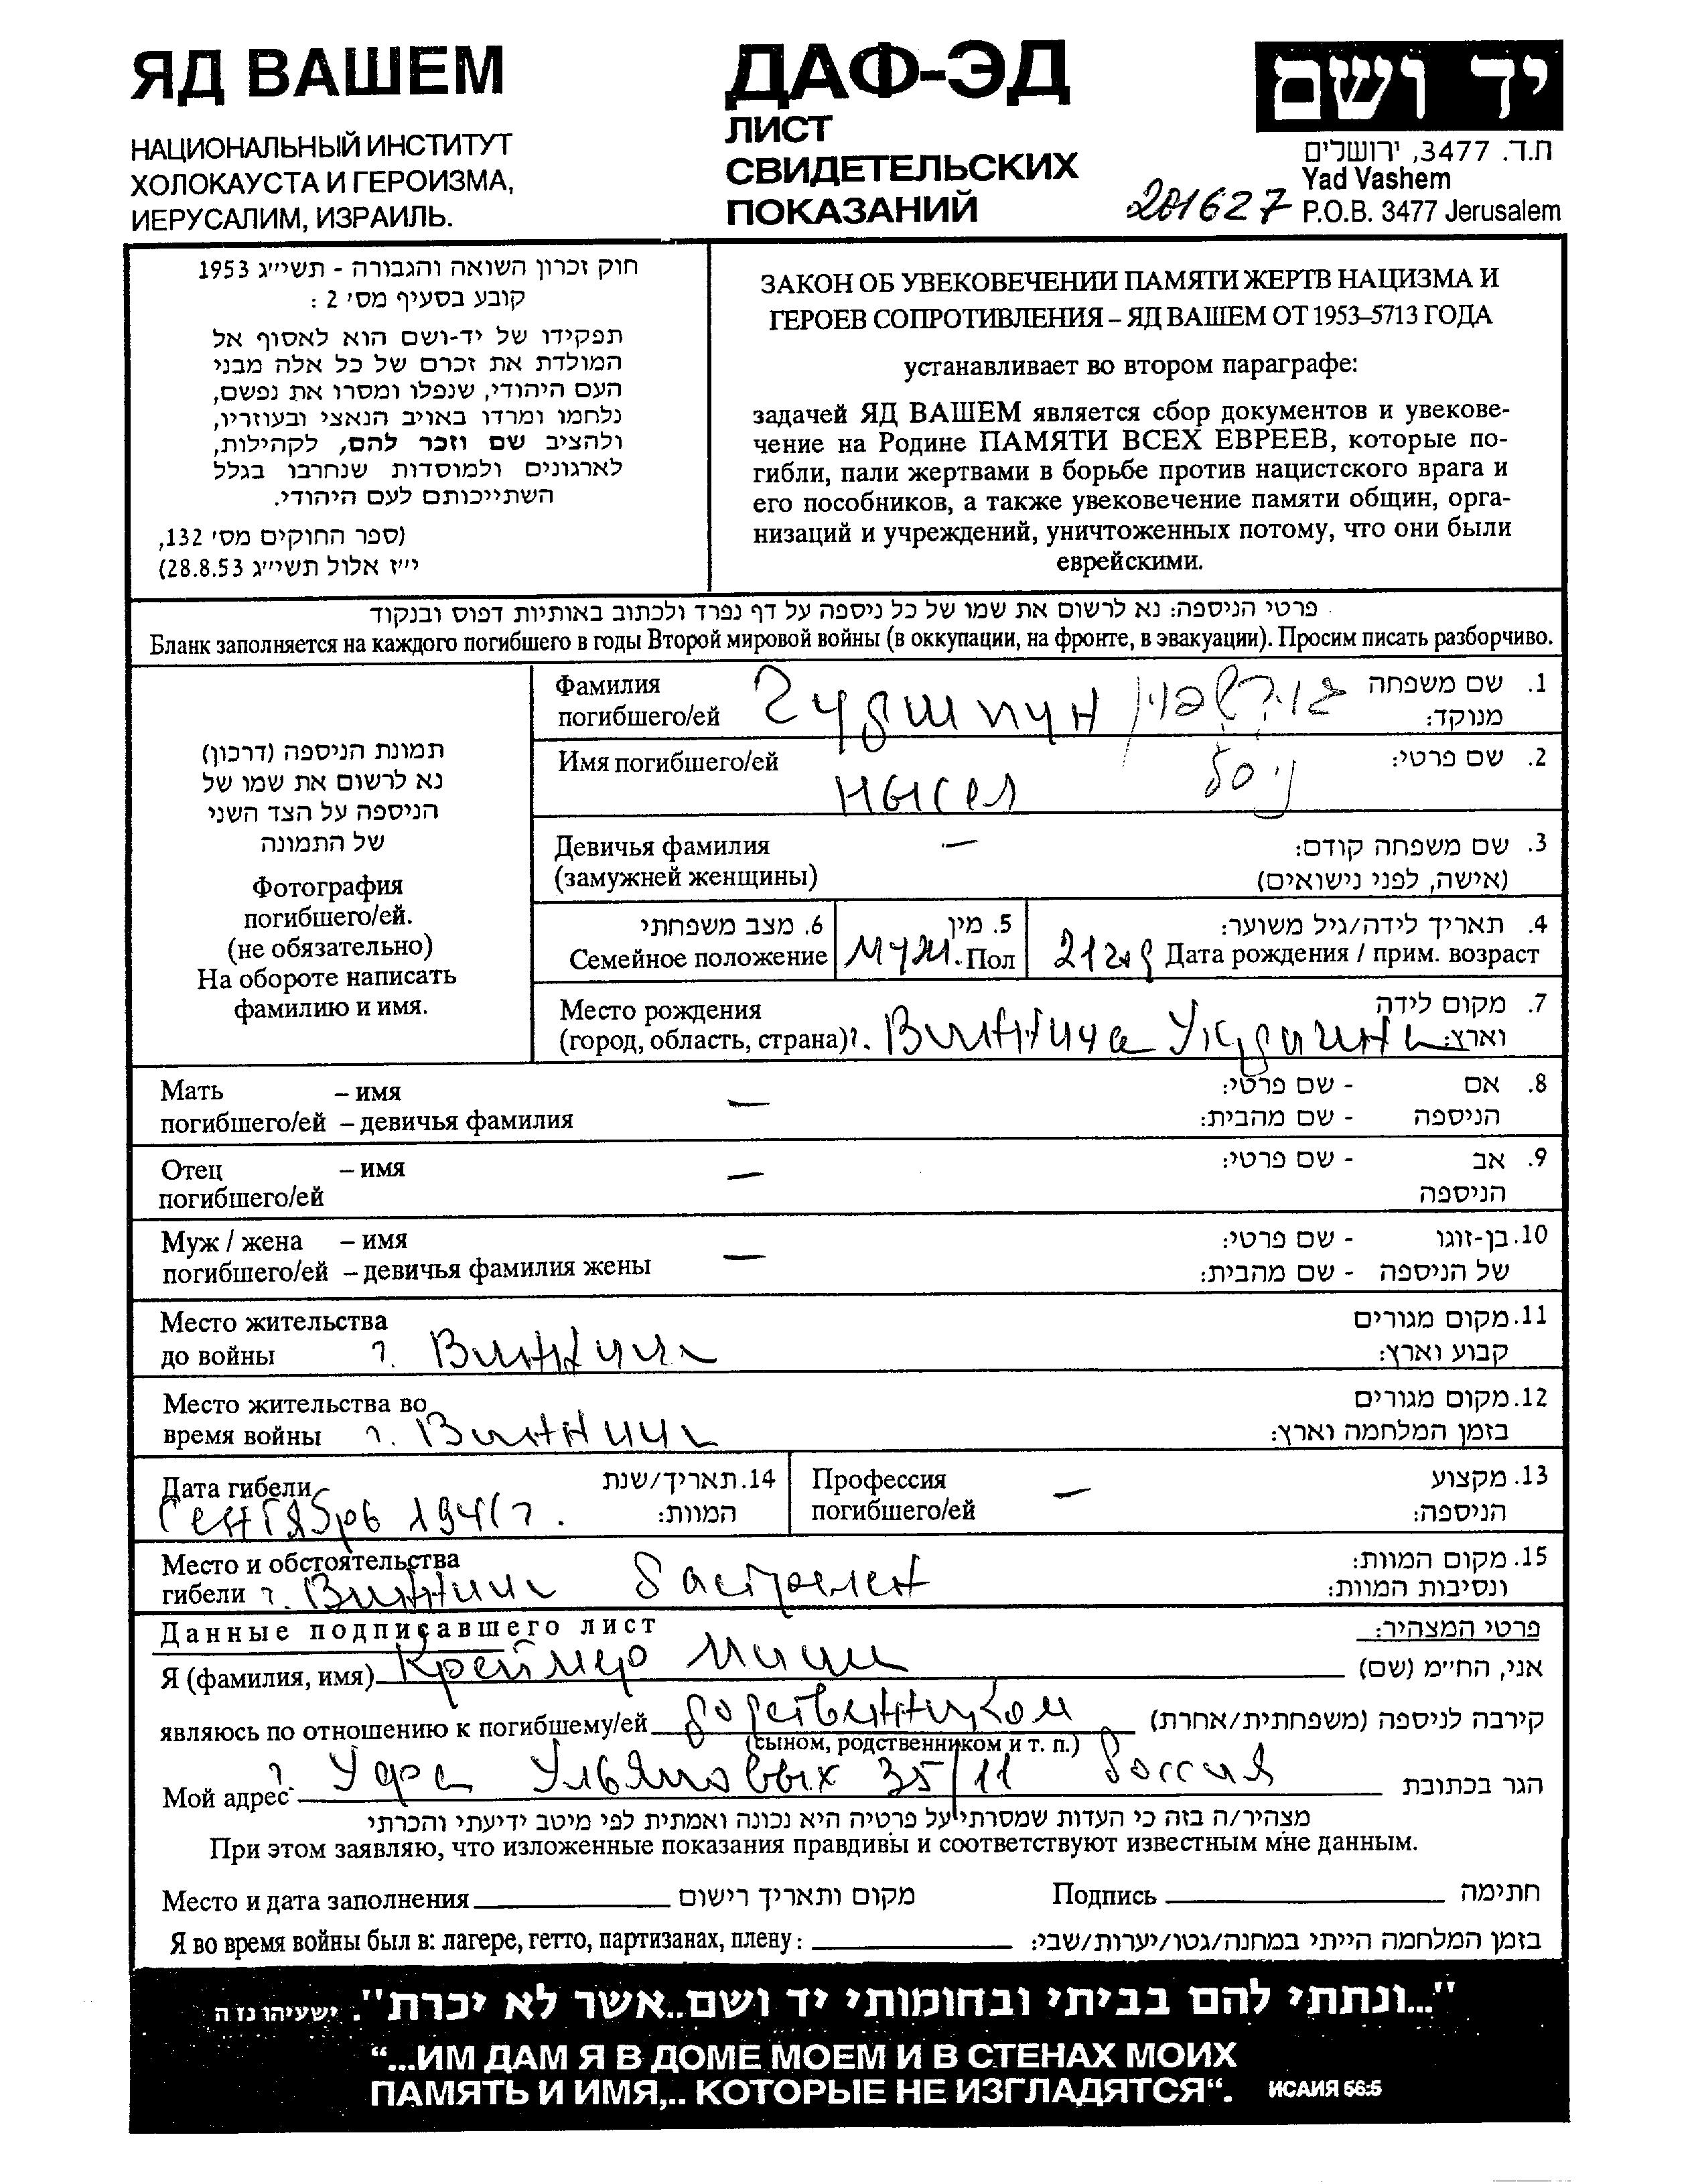 ЯД ВАШЕМ
НАЦИОНАЛЬНЫЙ ИНСТИТУТ
ХОЛОКАУСТА И ГЕРОИЗМА,
ИЕРУСАЛИМ, ИЗРАИЛЬ.
ДАФ-ЭД
ЛИСТ
СВИДЕТЕЛЬСКИХ
ПОКАЗАНИЙ
201627
יד ושם
ת.ד. 3477, ירושלים
Yad Vashem
P.O.B. 3477 Jerusalem
חוק זכרון השואה והגבורה - תשי״ג 1953
קובע בסעיף מס׳ 2 :
תפקידו של יד-ושם הוא לאסוף אל
המולדת את זכרם של כל אלה מבני
העם היהודי, שנפלו ומסרו את נפשם,
נלחמו ומרדו באויב הנאצי ובעוזריו,
ולהציב שם וזכר להם, לקהילות,
לארגונים ולמוסדות שנחרבו בגלל
השתייכותם לעם היהודי.
(ספר החוקים מס׳ 132,
י״ז אלול תשי״ג 28.8.53)
ЗАКОН ОБ УВЕКОВЕЧЕНИИ ПАМЯТИ ЖЕРТВ НАЦИЗМА И
ГЕРОЕВ СОПРОТИВЛЕНИЯ – ЯД ВАШЕМ ОТ 1953–5713 ГОДА
устанавливает во втором параграфе:
задачей ЯД ВАШЕМ является сбор документов и увекове-
чение на Родине ПАМЯТИ ВСЕХ ЕВРЕЕВ, которые по-
гибли, пали жертвами в борьбе против нацистского врага и
его пособников, а также увековечение памяти общин, орга-
низаций и учреждений, уничтоженных потому, что они были
еврейскими.
פרטי הניספה: נא לרשום את שמו של כל ניספה על דף נפרד ולכתוב באותיות דפוס ובנקוד
Бланк заполняется на каждого погибшего в годы Второй мировой войны (в оккупации, на фронте, в эвакуации). Просим писать разборчиво.
תמונת הניספה (דרכון)
נא לרשום את שמו של
הניספה על הצד השני
של התמונה
Фотография
погибшего/ей.
(не обязательно)
На обороте написать
фамилию и имя.
Фамилия
погибшего/ей Гудшпун גודשפון 1. שם משפחה
מנוקד:
Имя погибшего/ей Нысел ניסל 2. שם פרטי:
Девичья фамилия — 3. שם משפחה קודם:
(замужней женщины) (אישה, לפני נישואים)
6. מצב משפחתי
Семейное положение
5. מין
муж. Пол
4. תאריך לידה/גיל משוער:
21 год Дата рождения / прим. возраст
Место рождения 7. מקום לידה
(город, область, страна) г. Винница Украина וארץ:
Мать – имя — - שם פרטי: 8. אם
погибшего/ей – девичья фамилия - שם מהבית: הניספה
Отец – имя — - שם פרטי: 9. אב
погибшего/ей הניספה
Муж / жена – имя — - שם פרטי: 10. בן-זוגו
погибшего/ей – девичья фамилия жены - שם מהבית: של הניספה
Место жительства 11. מקום מגורים
до войны г. Винница קבוע וארץ:
Место жительства во 12. מקום מגורים
время войны г. Винница בזמן המלחמה וארץ:
Дата гибели 14. תאריך/שנת
Сентябрь 1941 г. המוות:
Профессия — 13. מקצוע
погибшего/ей הניספה:
Место и обстоятельства 15. מקום המוות:
гибели г. Винница Расстрелен ונסיבות המוות:
Данные подписавшего лист פרטי המצהיר:
Я (фамилия, имя) Креймер Миша אני, הח״מ (שם)
являюсь по отношению к погибшему/ей родственником קירבה לניספה (משפחתית/אחרת)
(сыном, родственником и т. п.)
Мой адрес г. Уфа Ульяновых 35/11 Россия הגר בכתובת
מצהיר/ה בזה כי העדות שמסרתי על פרטיה היא נכונה ואמתית לפי מיטב ידיעתי והכרתי
При этом заявляю, что изложенные показания правдивы и соответствуют известным мне данным.
Место и дата заполнения מקום ותאריך רישום Подпись חתימה
Я во время войны был в: лагере, гетто, партизанах, плену: בזמן המלחמה הייתי במחנה/גטו/יערות/שבי:
"...ונתתי להם בביתי ובחומותי יד ושם..אשר לא יכרת". ישעיהו נז ה
“...ИМ ДАМ Я В ДОМЕ МОЕМ И В СТЕНАХ МОИХ
ПАМЯТЬ И ИМЯ,.. КОТОРЫЕ НЕ ИЗГЛАДЯТСЯ“. ИСАИЯ 56:5